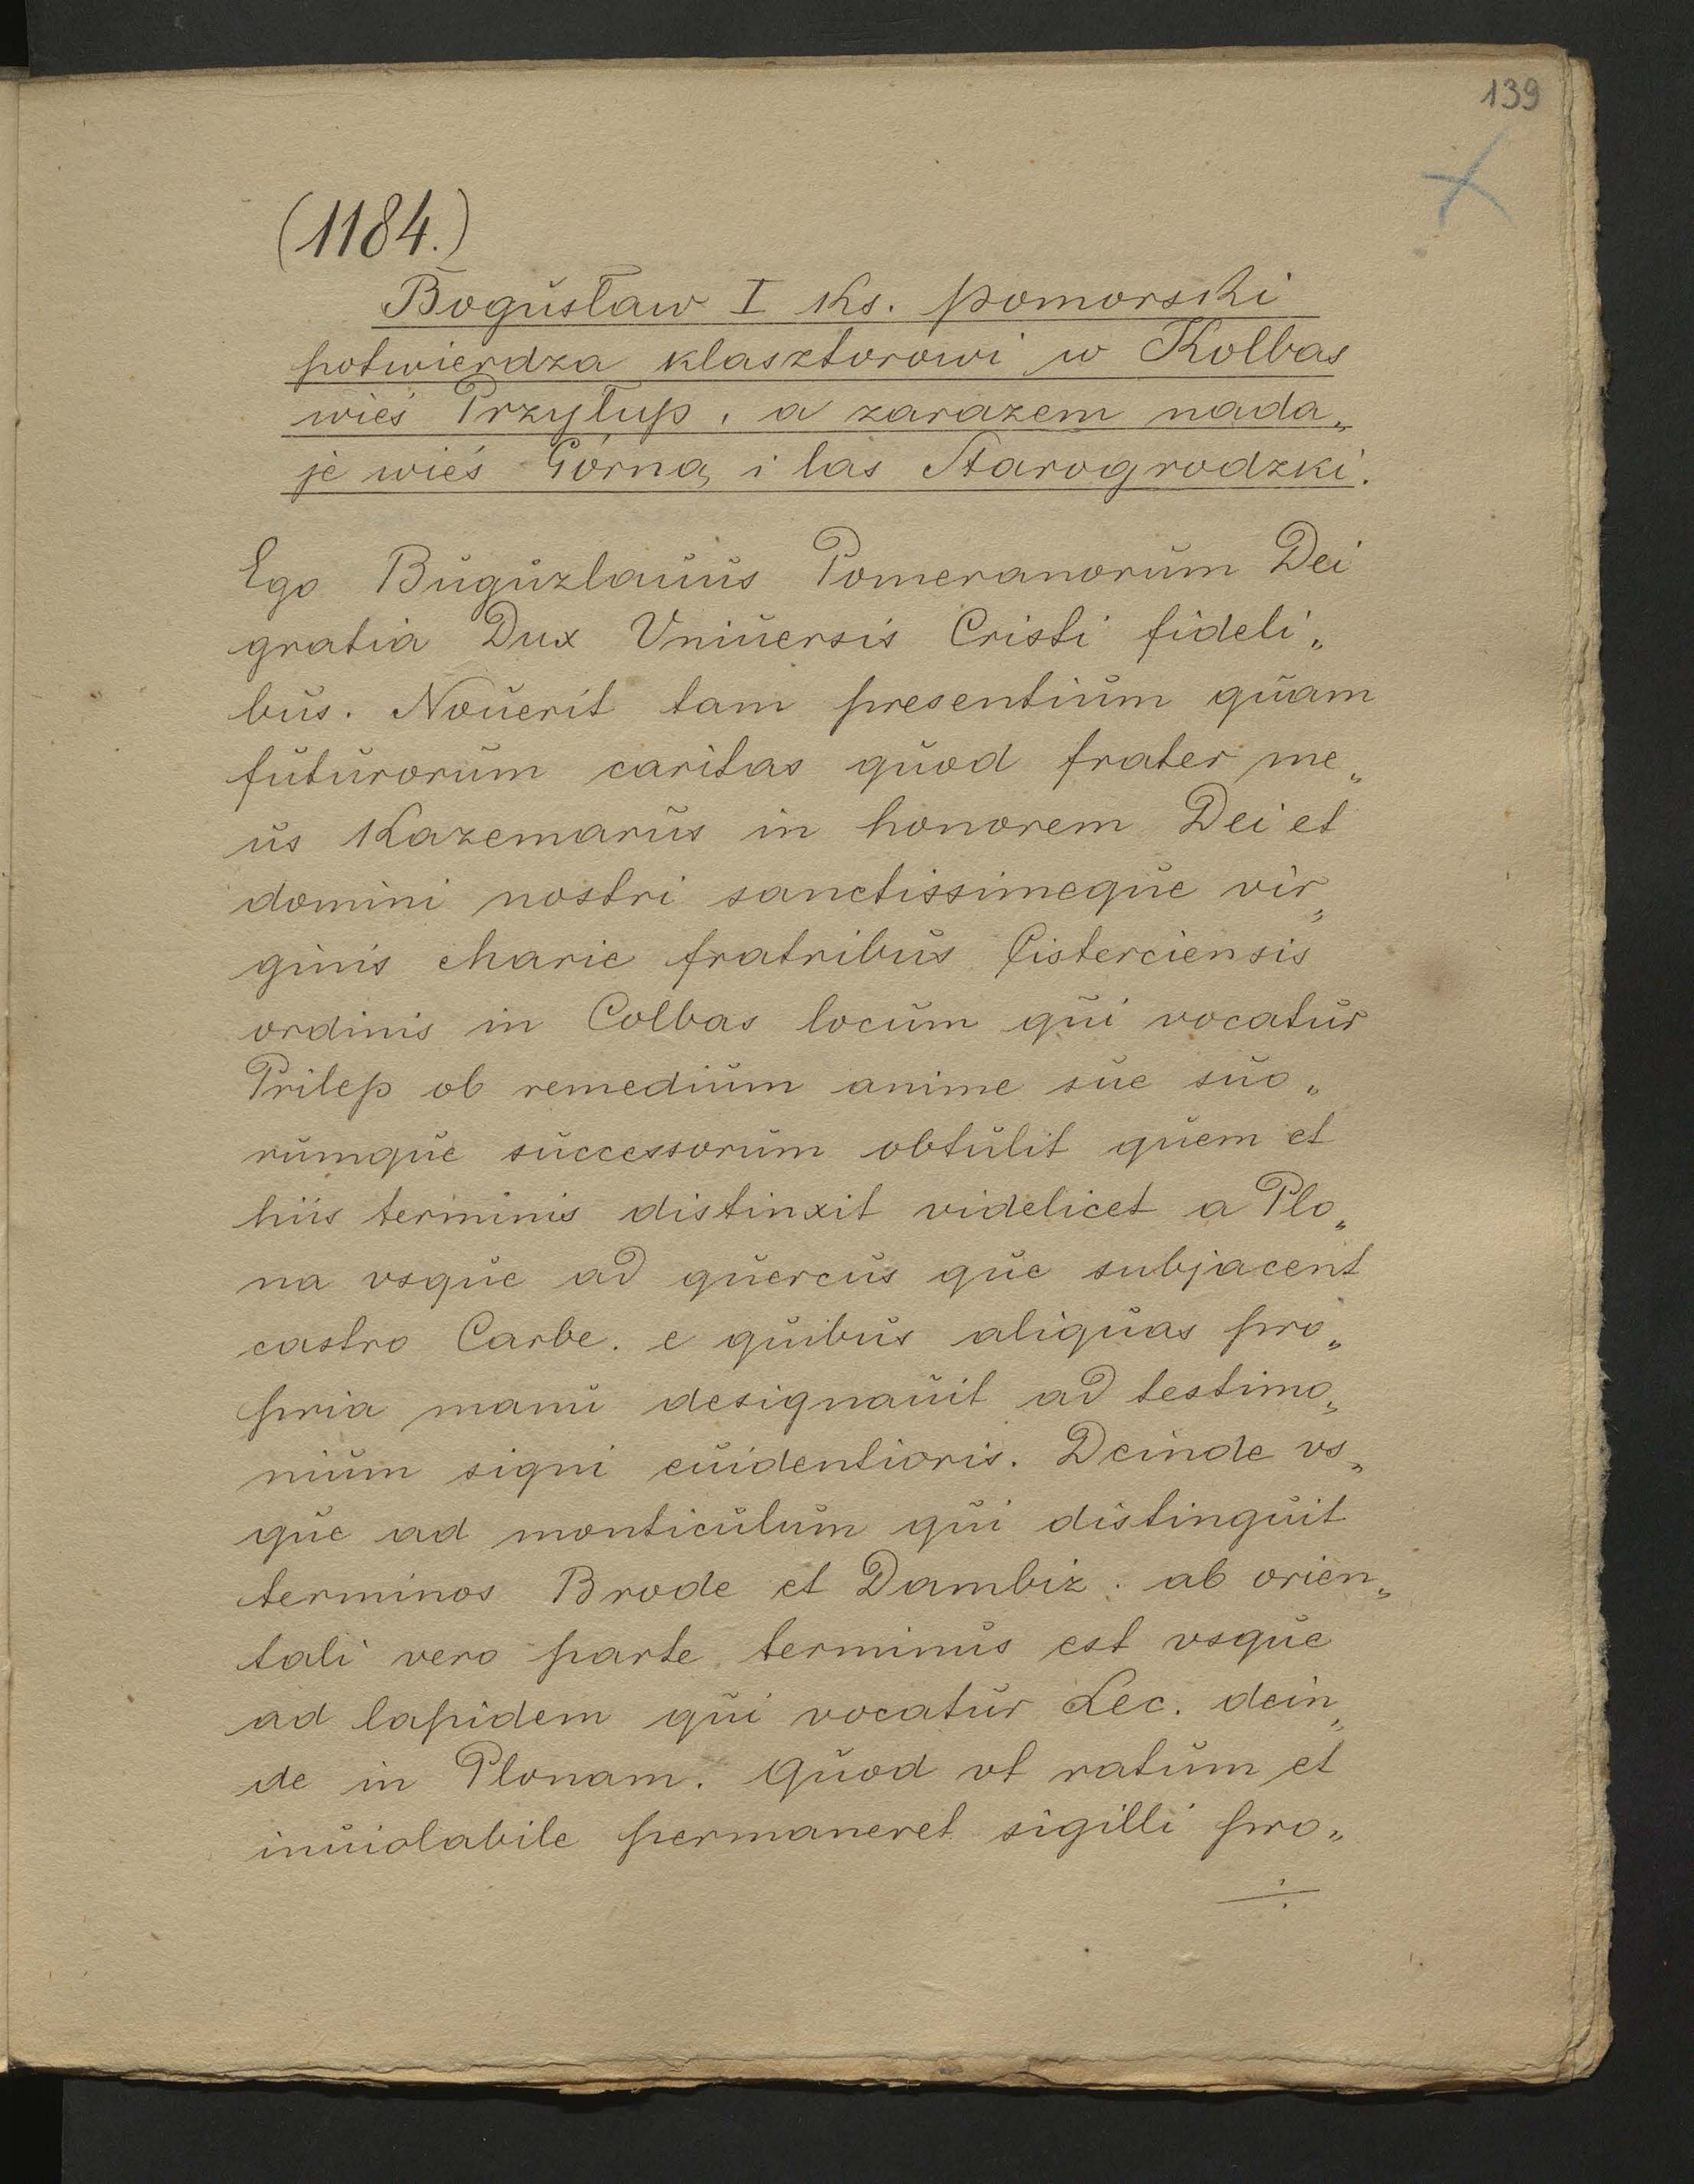 139
(1184.)
Bogusław I Ks. pomorski
potwierdza klasztorowi w Kolbas
wieś Przyłup, a zarazem nada„
je wieś Górną i las Starogrodzki.
Ego Buguzlauus Pomeranorum Dei
gratia Dux Vniuersis Cristi fideli„
bus. Nouerit tam presentium quam
futurorum caritas quod frater me„
us Kazemarus in honorem Dei et
domini nostri sanctissimeque vir„
ginis Marie fratribus Cisterciensis
ordinis in Colbas locum qui vocatur
Prilep ob remedium anime sue suo„
rumque successorum obtulit quem et
hiis terminis distinxit videlicet a Plo„
na vsque ad quercus que subjacent
castro Carbe. e quibus aliquas pro„
pria manu designauit ad testimo„
nium signi euidentioris. Deinde vs„
que ad monticulum qui distinguit
terminos Brode et Dambiz. ab orien„
tali vero parte terminus est vsque
ad lapidem qui vocatur Lec. dein„
de in Plonam. Quod vt ratum et
inuiolabile permaneret sigilli pro„
÷